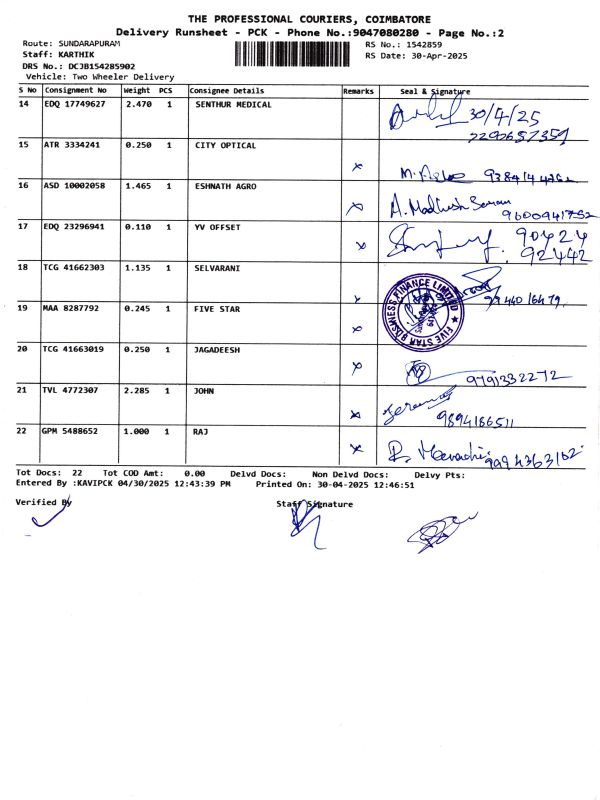 THE PROFESSIONAL COURIERS, COIMBATORE
Delivery Runsheet - PCK - Phone No.:9047080280 - Page No.:2
Route: SUNDARAPURAM RS No.: 1542859
Staff: KARTHIK RS Date: 30-Apr-2025
DRS No.: DCJB154285902
Vehicle: Two Wheeler Delivery
S No Consignment No Weight PCS Consignee Details Remarks Seal & Signature
14 EDQ 17749627 2.470 1 SENTHUR MEDICAL 30/4/25
15 ATR 3334241 0.250 1 CITY OPTICAL
16 ASD 10002058 1.465 1 ESHNATH AGRO
17 EDQ 23296941 0.110 1 YV OFFSET 90424
92442
18 TCG 41662303 1.135 1 SELVARANI
19 MAA 8287792 0.245 1 FIVE STAR
FIVE STAR BUSINESS FINANCE LIMITED
20 TCG 41663019 0.250 1 JAGADEESH
9791332272
21 TVL 4772307 2.285 1 JOHN
9894186511
22 GPM 5488652 1.000 1 RAJ
Tot Docs: 22 Tot COD Amt: 0.00 Delvd Docs: Non Delvd Docs: Delvy Pts:
Entered By :KAVIPCK 04/30/2025 12:43:39 PM Printed On: 30-04-2025 12:46:51
Verified By Staff Signature